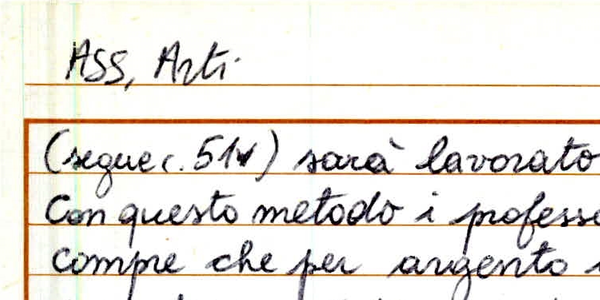 Ass, Arti
(segue c. 51v) sarà lavorato
Con questo metodo i professo
compre che per argento